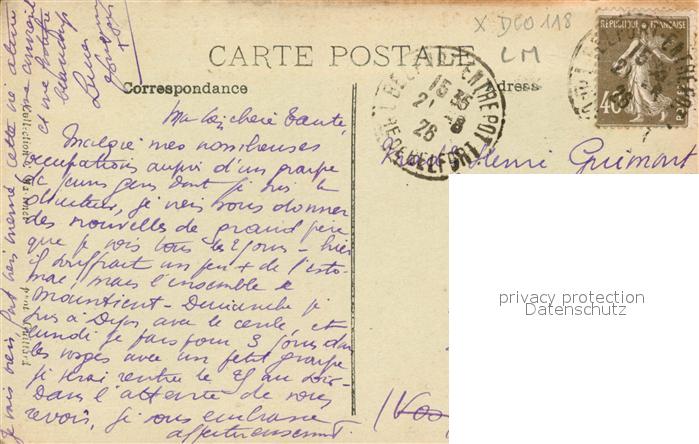 X DCO 118
LM
CARTE POSTALE
Correspondance
Adress
RÉPUBLIQUE FRANÇAISE
40
POSTES
BELFORT ENTREPOT
15 35
2 - 8
26
Ma bien chère Tante,
Malgré mes nombreuses
occupations auprès d'un groupe
de jeunes gens dont je suis le
directeur, je viens vous donner
des nouvelles de grand père
que je vois tous les 2 jours - hier
il souffrait un peu + de l'esto-
mac, mais l'ensemble se
maintient - Dimanche je
suis à Dijon avec le cercle, et
lundi je pars pour 3 jours dans
les Vosges avec un petit groupe
je serai rentré le 25 au soir -
Dans l'attente de vous
revoir, je vous embrasse
affectueusement.
Henri Guimont
(Vos
je vais bien
cette vie active
me convient
et me
beaucoup
Collections
privacy protection
Datenschutz